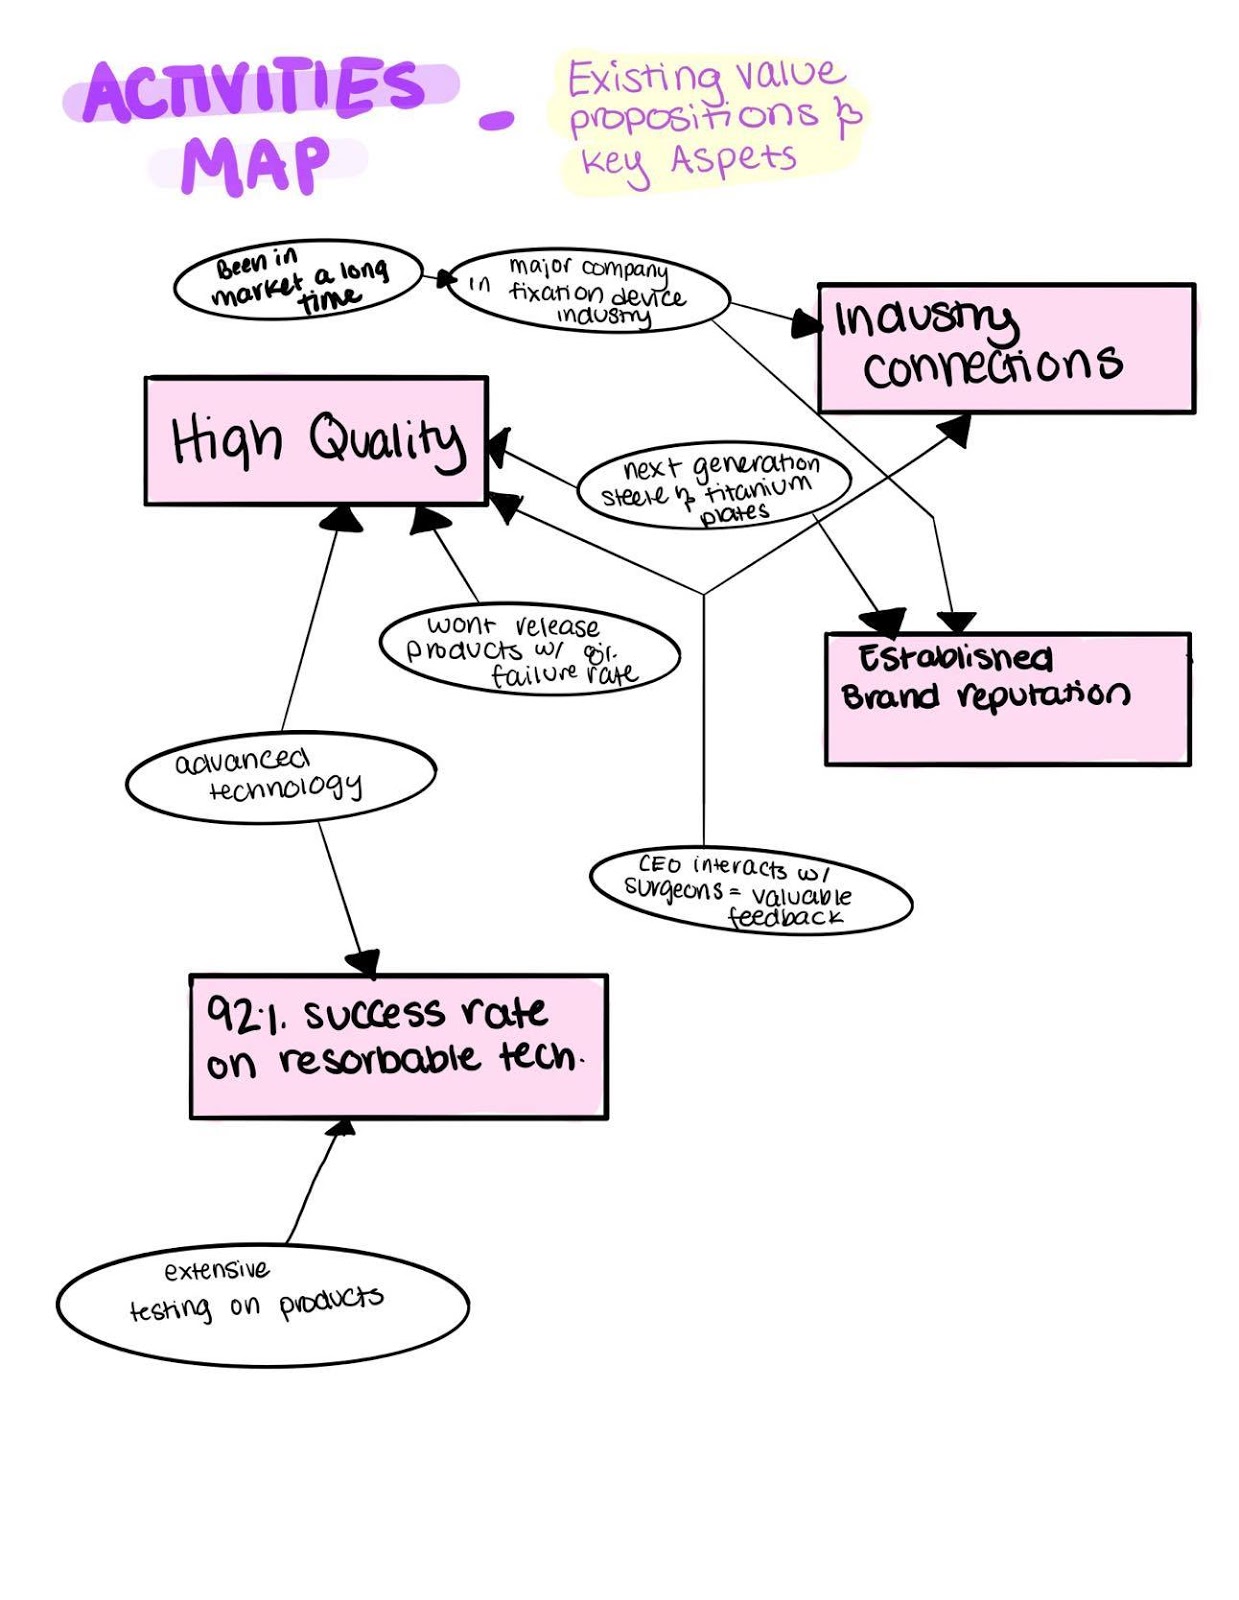 ACTIVITIES
MAP
-
Existing value
propositions &
key Aspets
Been in
market a long
time
major company
in fixation device
industry
Industry
connections
High Quality
next generation
steele & titanium
plates
wont release
products w/
failure rate
Established
Brand reputation
advanced
technology
CEO interacts w/
surgeons = valuable
feedback
92%. success rate
on resorbable tech.
extensive
testing on products